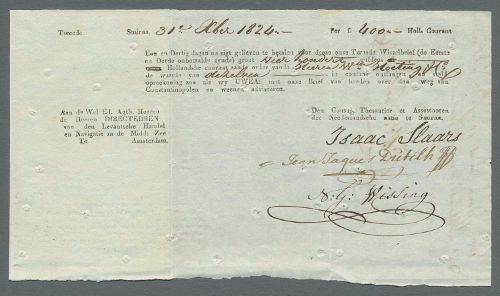 Tweede Smirna, 31e Xber 1824 Per f. 400 Holl. Courant
Een en Dertig dagen na zigt gelieven te betalen voor dezen onze Tweede Wisselbrief (de Eerste
en Derde onbetaalde zynde) groot vier honderd guldens
Hollandsche courant aan de order van de Heeren
de waarde van dezelven in contant ontfangen en stelt
op rekening aan als per UWEA: met onze Brief van landen over den weg van
Constantinopolen en weenen adviseeren.
Aan de Wel Ed. Agtb. Heeren
de Heeren DIRECTEUREN
van den Levantsche Handel
en Navigatie in de Midd: Zee
Te Amsterdam.
Den Consul, Thesaurier en Assessooren
der Nederlandsche natie te Smirna.
Isaac Slaars
Jean Jaques Dutilh
N: G: Wissing